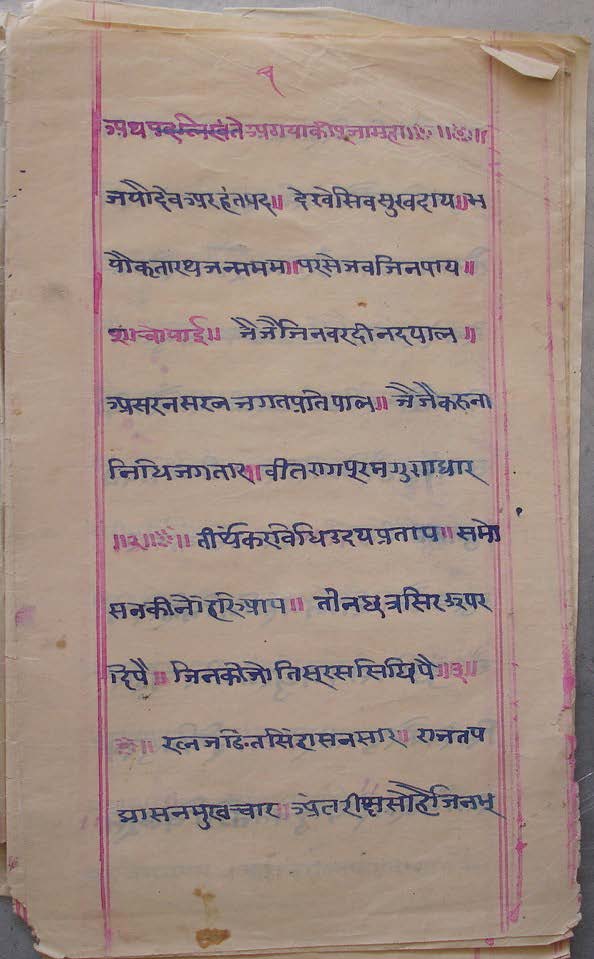 १
अथ पद लिखंते अगयाकीप्रनामतरा॥ः॥ः॥
जयौदेवअरहंतपद॥ देखेसिवसुखदाय॥भ
यौकृतारथजन्ममम॥परसेजवजिनपाय॥
१॥चोपाई॥ जैजैजिनवरदीनदयाल॥
असरनसरनजगतप्रतिपाल॥ जैजैकरुना
निधिजगतार॥वीतरागपरमगुणधार
॥२॥ः॥ तीर्थंकरविधिउदयप्रताप॥ समो
सनकीनोहरिआप॥ तीनछत्रसिरऊपर
दिपै॥ जिनकीजोतिसूरससिछिपै॥३॥
ः॥ रत्नजडितसिंहासनसार॥ राजतप
द्मासनमुखच्यार॥अंतरीक्षसोहैजिनम्